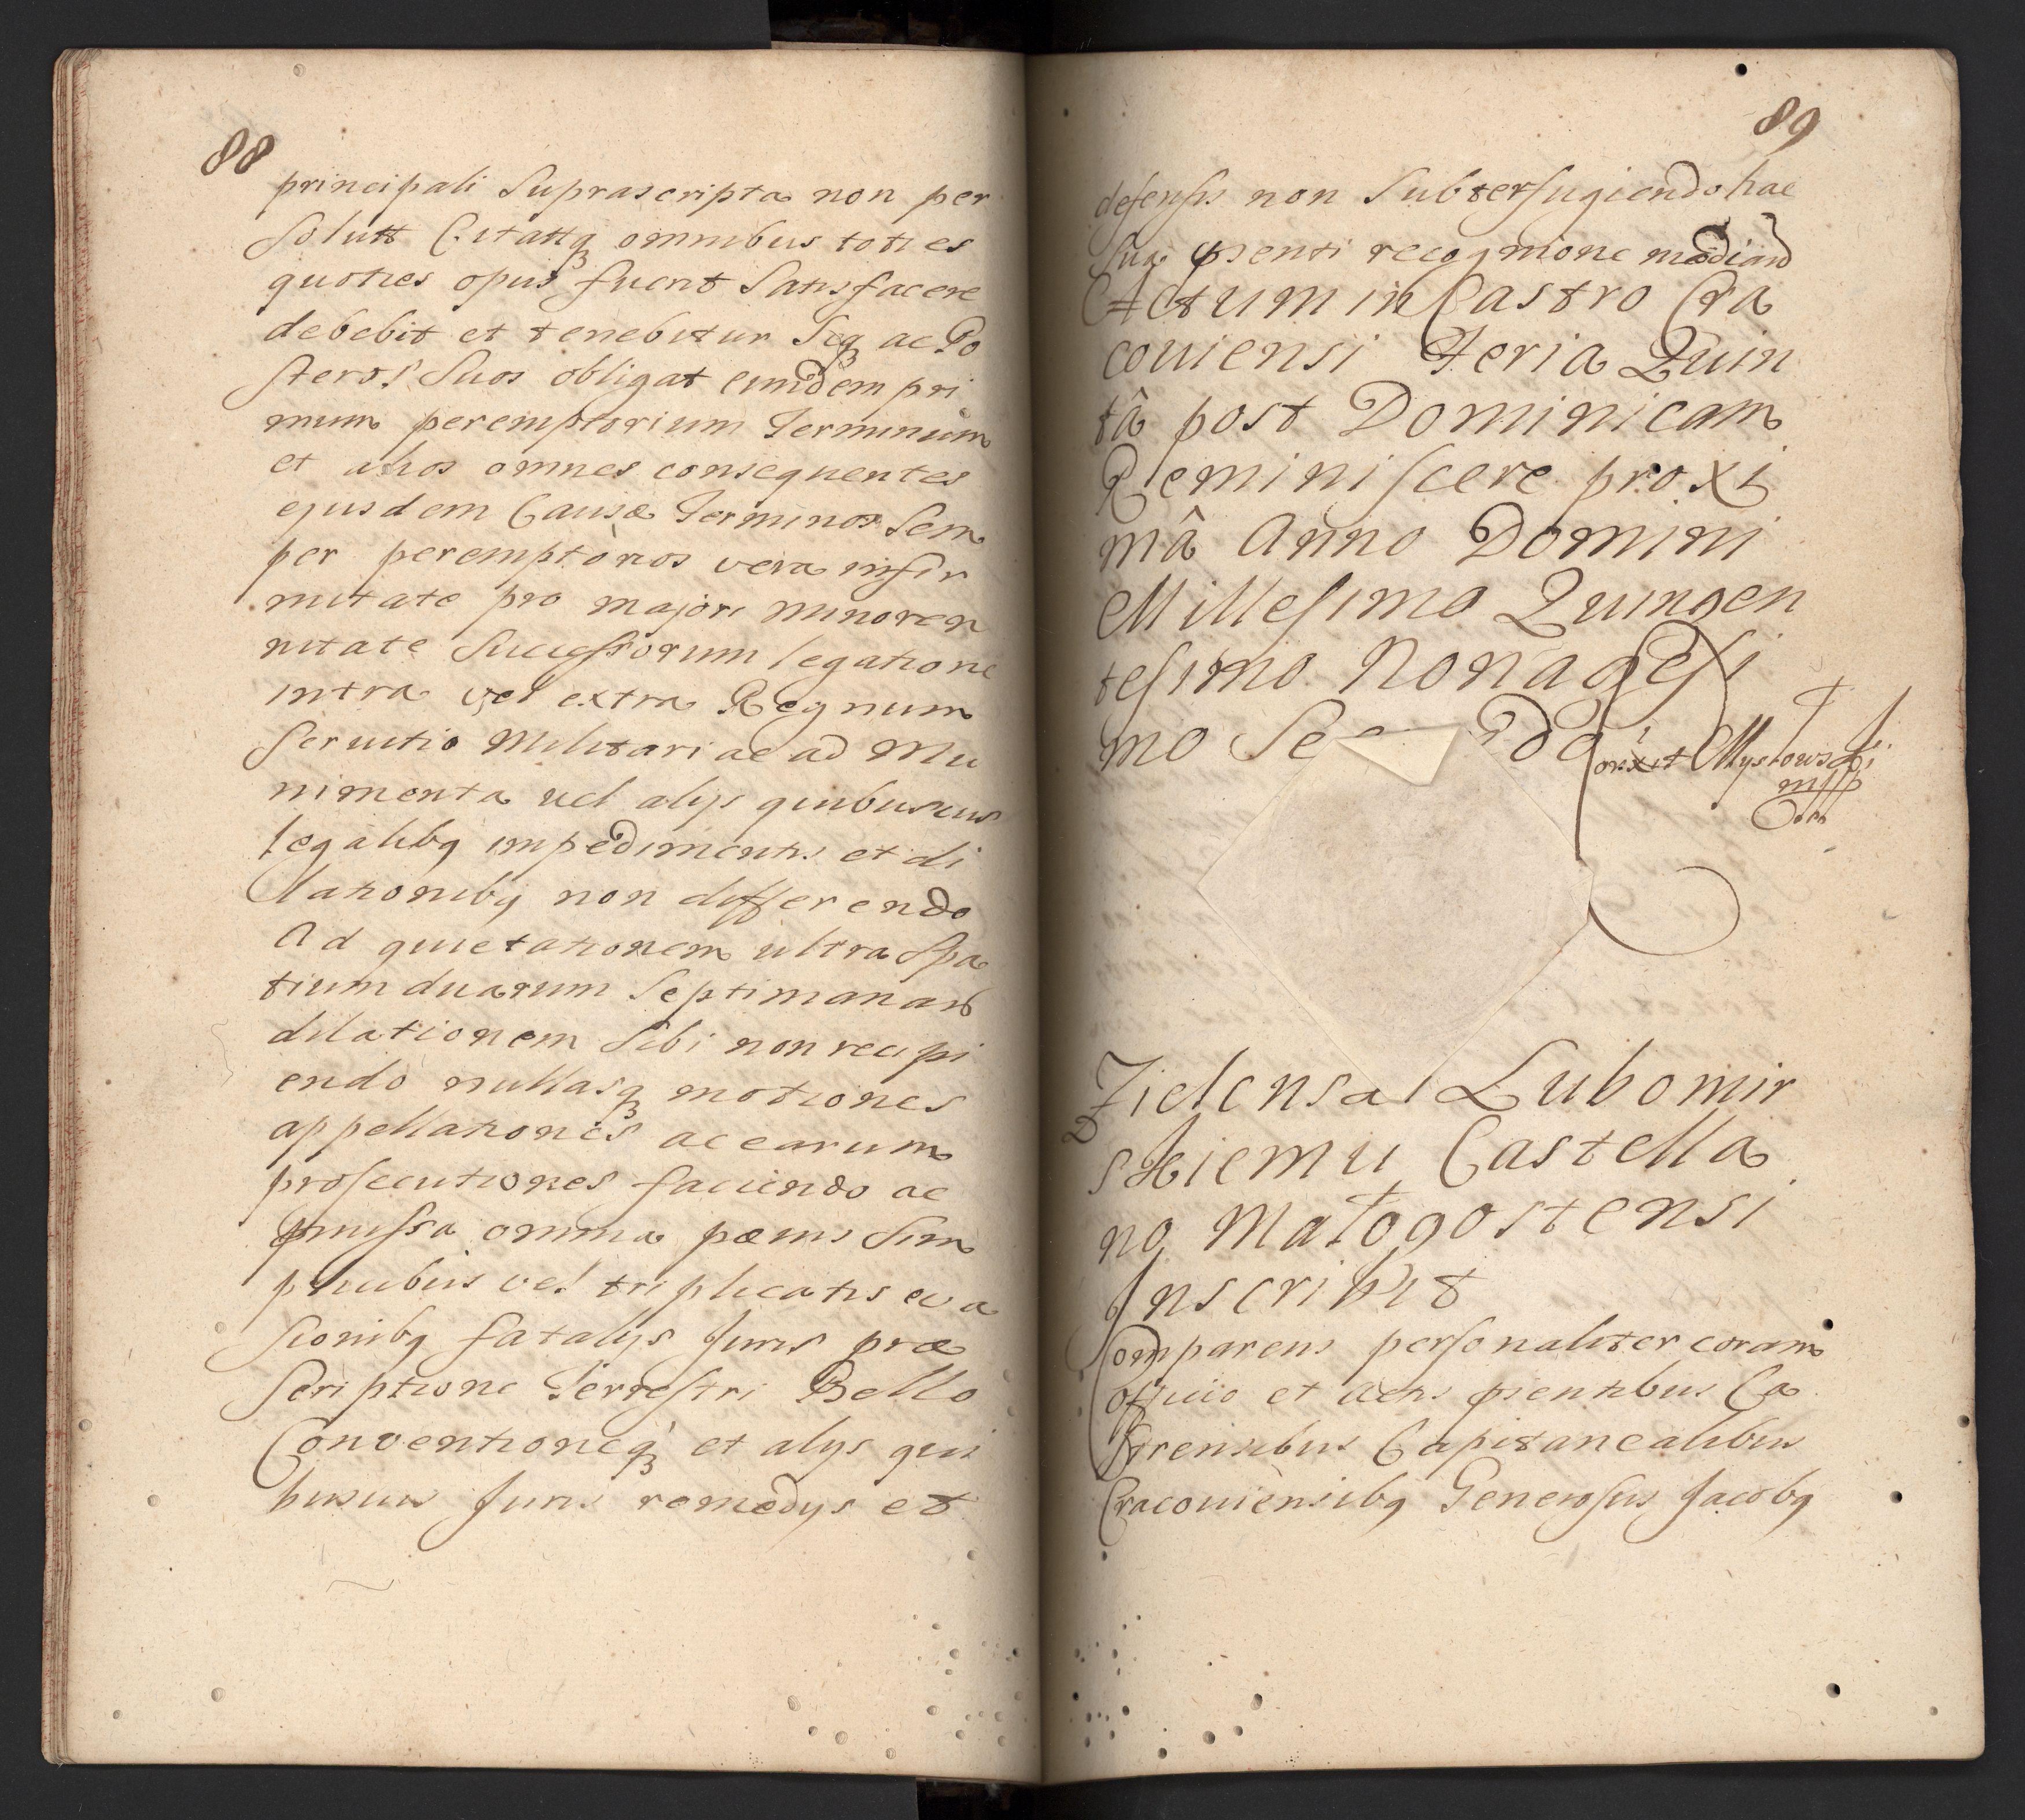 88
principali Suprascripta non per
solutt Citattq3 omnibus toties
quoties opus fuerit Satisfacere
debebit et tenebitur Seq3 ac Po
steros Suos obligat eundem pri
mum peremptorium Terminum
et alios omnes consequentes
ejusdem Causæ Terminos Sem
per peremptorios vera infir
mitate pro majori minoren
nitate Successorum legatione
intra vel extra Regnum
Servitio Militari ac ad Mu
nimenta vel alys quibuscus
legalibq impedimentis et di
lationibq non differendo
Ad quietationem ultra Spa
tium duarum Septimanar
dilationem Sibi non recipi
endo nullasq3 motiones
appellationes ac earum
prosecutiones faciendo ac
pmissa omnia pœnis Sim
plicibus vel triplicatis eva
sionibq fatalys Juris præ
Scriptione Terrestri Bello
Conventioneq3 et alys qui
buscus Juris remedys et
89
defensis non Subterfugiendo hac
Sua psenti recognitione mediand
Actum in Castro Cra
couiensi Feria Quin
tâ post Dominicam
Reminiscere proxi
mâ Anno Domini
Millesimo Quingen
tesimo Nonagesi
mo Se do
Correxit Myslowski
mpp
Zielensa Lubomir
skiemu Castella
no Małogostensi
Inscribit
Comparens personaliter coram
officio et actis psentibus Ca
strensibus Capitanealibus
Cracouiensibq Generosus Jacobq